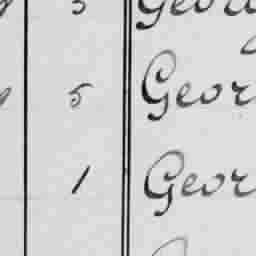 5 Geor
5 Geor
1 Geor